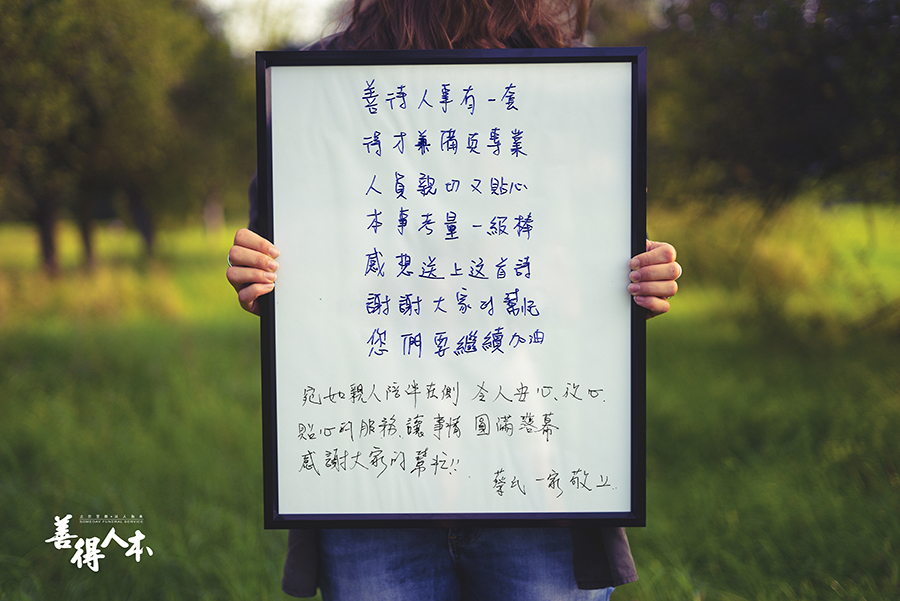 善待人事有一套
得才兼備真專業
人員親切又貼心
本事考量一級棒
感想送上这首詩
謝謝大家的幫忙
您們要繼續加油
宛如親人陪伴在側 令人安心、放心、
貼心的服務、讓事情 圓滿落幕
感謝大家的幫忙!!
蔡氏一家敬上..
SOMEDAY FUNERAL SERVICE
善得人本